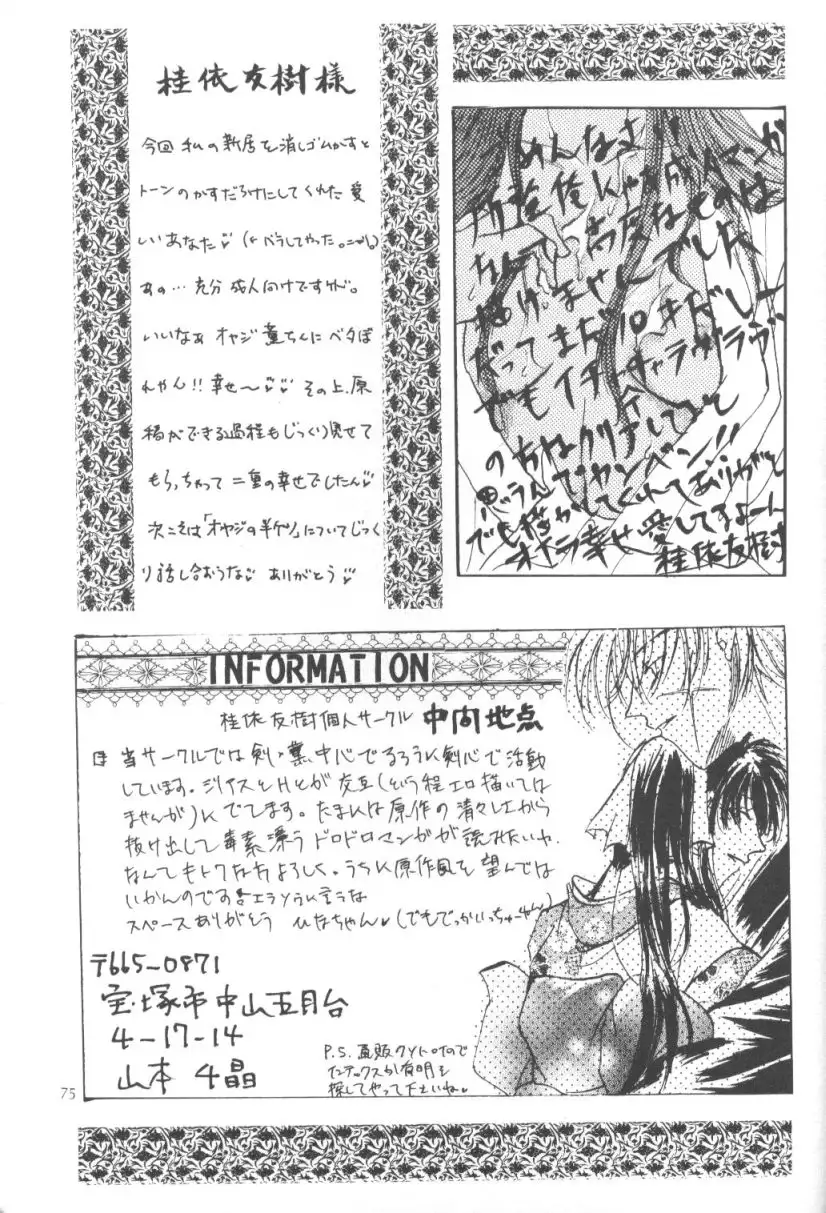 桂依友樹様
今回 私の新居を消しゴムかすと
トーンのかすだらけにしてくれた 愛
しいあなた
あの… 充分 成人向けですけど。
いいなぁ オヤジ 薫ちんに ベタぼ
れやん!! 幸せ〜 その上、原
稿ができる過程もじっくり見せて
もらっちゃって 二重の幸せでしたん
次こそは「オヤジの半ケツ」についてじっく
り話し合おうな ありがとう
ごめんなさい
所詮俺んゃ成人マンガ
なんて 高度なものは
描けませんでした
だってまだ10才だしー
でもイチャイチャラヴラヴ
のちはクリアしてると
思うんでカンベン!!
でも描かしてくれてありがとー
オイラ幸せ 愛してるよーん
桂依友樹
INFORMATION
桂依友樹個人サークル 中間地点
当サークルでは剣・薫 中心でるろうに剣心で活動
しています。シリアスとHとが 交互(という程エロ描いては
ませんが)にでてます。たまには原作の清々しさから
抜け出して 毒素漂う ドロドロマンガが 読みたいわ
なんてもトクな方よろしく。うちに原作風を望んでは
いかんのです
スペースありがとう ひなちゃん (でもでっかいっちゅーねん)
〒665-0871
宝塚市中山五月台
4-17-14
山本 千晶
P.S. 直販
インテックスか有明を
探してやって下さいね
75